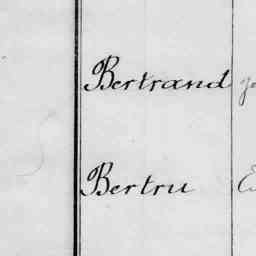 Bertrand
Bertru